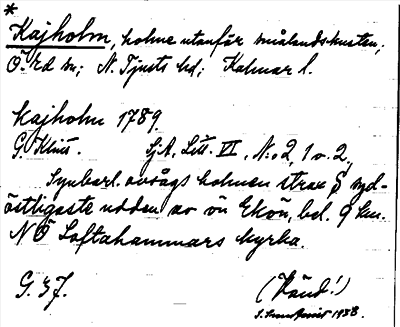 *
Kajholm, holme utanför smålandskusten,
Ö. Ed sn; N. Tjusts hd; Kalmar l.
Kajholm 1789
G. Klint. Sj.A. Litt. VI, N:o 2, 1 o. 2.
Synbarl. avsågs holmen strax S syd-
östligaste udden av ön Ekön, bel. 9 km.
NÖ Loftahammars kyrka.
G. 37. (Vänd!)
1938